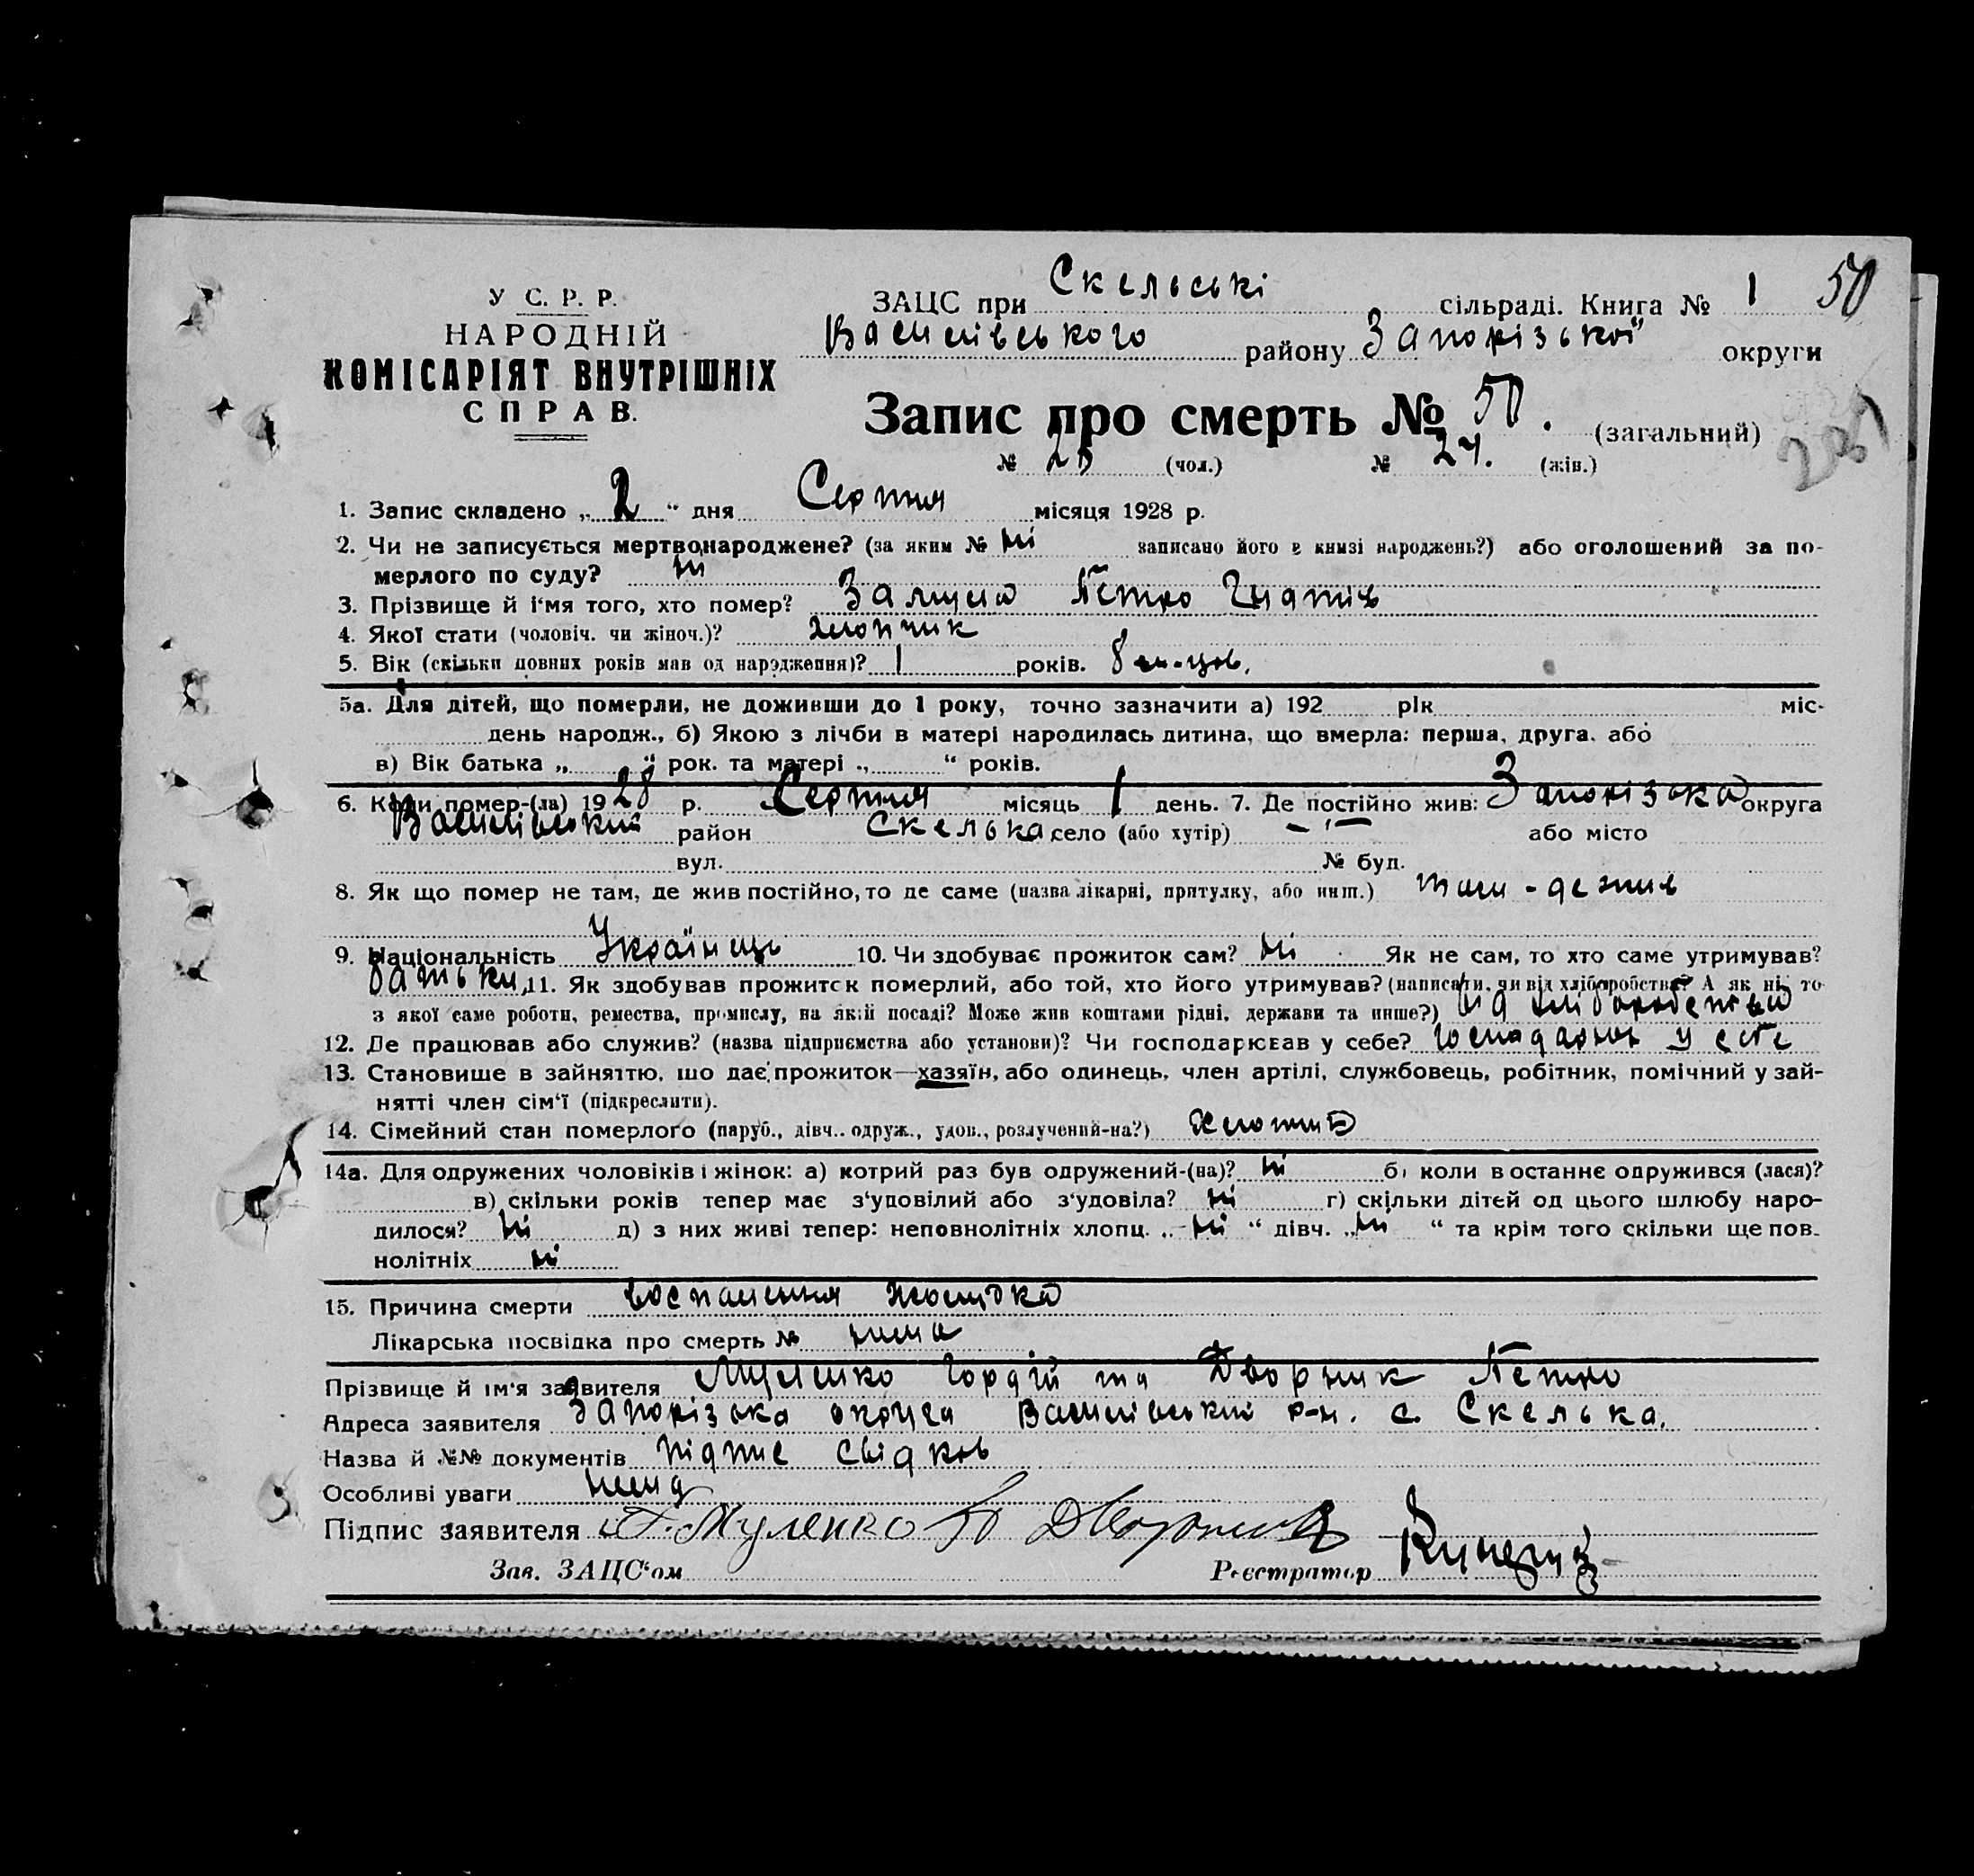 У С. Р. Р.
НАРОДНІЙ
КОМІСАРІЯТ ВНУТРІШНІХ
СПРАВ.
ЗАЦС при Скельські сільраді. Книга № 1 50
Василівського району Запорізької округи
Запис про смерть № 50. (загальний)
№ (чол.) № 24. (жін.)
1. Запис складено „2“ дня Серпня місяця 1928 р.
2. Чи не записується мертвонароджене? (за яким № ні записано його в книзі народжень?) або оголошений за по-
мерлого по суду? ні
3. Прізвище й ім'я того, хто помер? Петро
4. Якої стати (чоловіч. чи жіноч.)? хлопчик
5. Вік (скільки повних років мав од народження)? 1 років. 8 м-цов.
5а. Для дітей, що померли, не доживши до 1 року, точно зазначити а) 192 рік міс-
день народж., б) Якою з лічби в матері народилась дитина, що вмерла: перша, друга, або
в) Вік батька „ “ рок. та матері „ “ років.
6. Коли помер-(ла) 1928 р. Серпня місяць 1 день. 7. Де постійно жив: Запорізька округа
Василівський район Скелька село (або хутір) — " — або місто
вул. № буд.
8. Як що помер не там, де жив постійно, то де саме (назва лікарні, притулку, або инш.) там - де жив
9. Національність Українець 10. Чи здобуває прожиток сам? ні Як не сам, то хто саме утримував?
батьки 11. Як здобував прожиток померлий, або той, хто його утримував? (написати, чи від хліборобства? А як ні, то
з якої саме роботи, ремества, промислу, на якій посаді? Може жив коштами рідні, держави та инше?) від хліборобства
12. Де працював або служив? (назва підприємства або установи)? Чи господарював у себе? господарює у себе
13. Становище в зайняттю, що дає прожиток—хазяїн, або одинець, член артілі, службовець, робітник, помічний у зай-
нятті член сім'ї (підкреслити).
14. Сімейний стан померлого (паруб., дівч.. одруж., удов., розлучений-на?)
14а. Для одружених чоловіків і жінок: а) котрий раз був одружений-(на)? ні б) коли в останнє одружився (лася)?
в) скільки років тепер має з'удовілий або з'удовіла? ні г) скільки дітей од цього шлюбу наро-
дилося? ні д) з них живі тепер: неповнолітніх хлопц. „ні“ дівч. „ні“ та крім того скільки ще пов-
нолітніх ні
15. Причина смерти воспаления жолудка
Лікарська посвідка про смерть № нима
Прізвище й ім'я заявителя Муленко Гордій та Дворник Петро
Адреса заявителя Запорізька округа Василівський р-н. с. Скелька.
Назва й №№ документів підпис свідков
Особливі уваги нима
Підпис заявителя Г. Муленко
Зав. ЗАЦС'ом Реєстратор